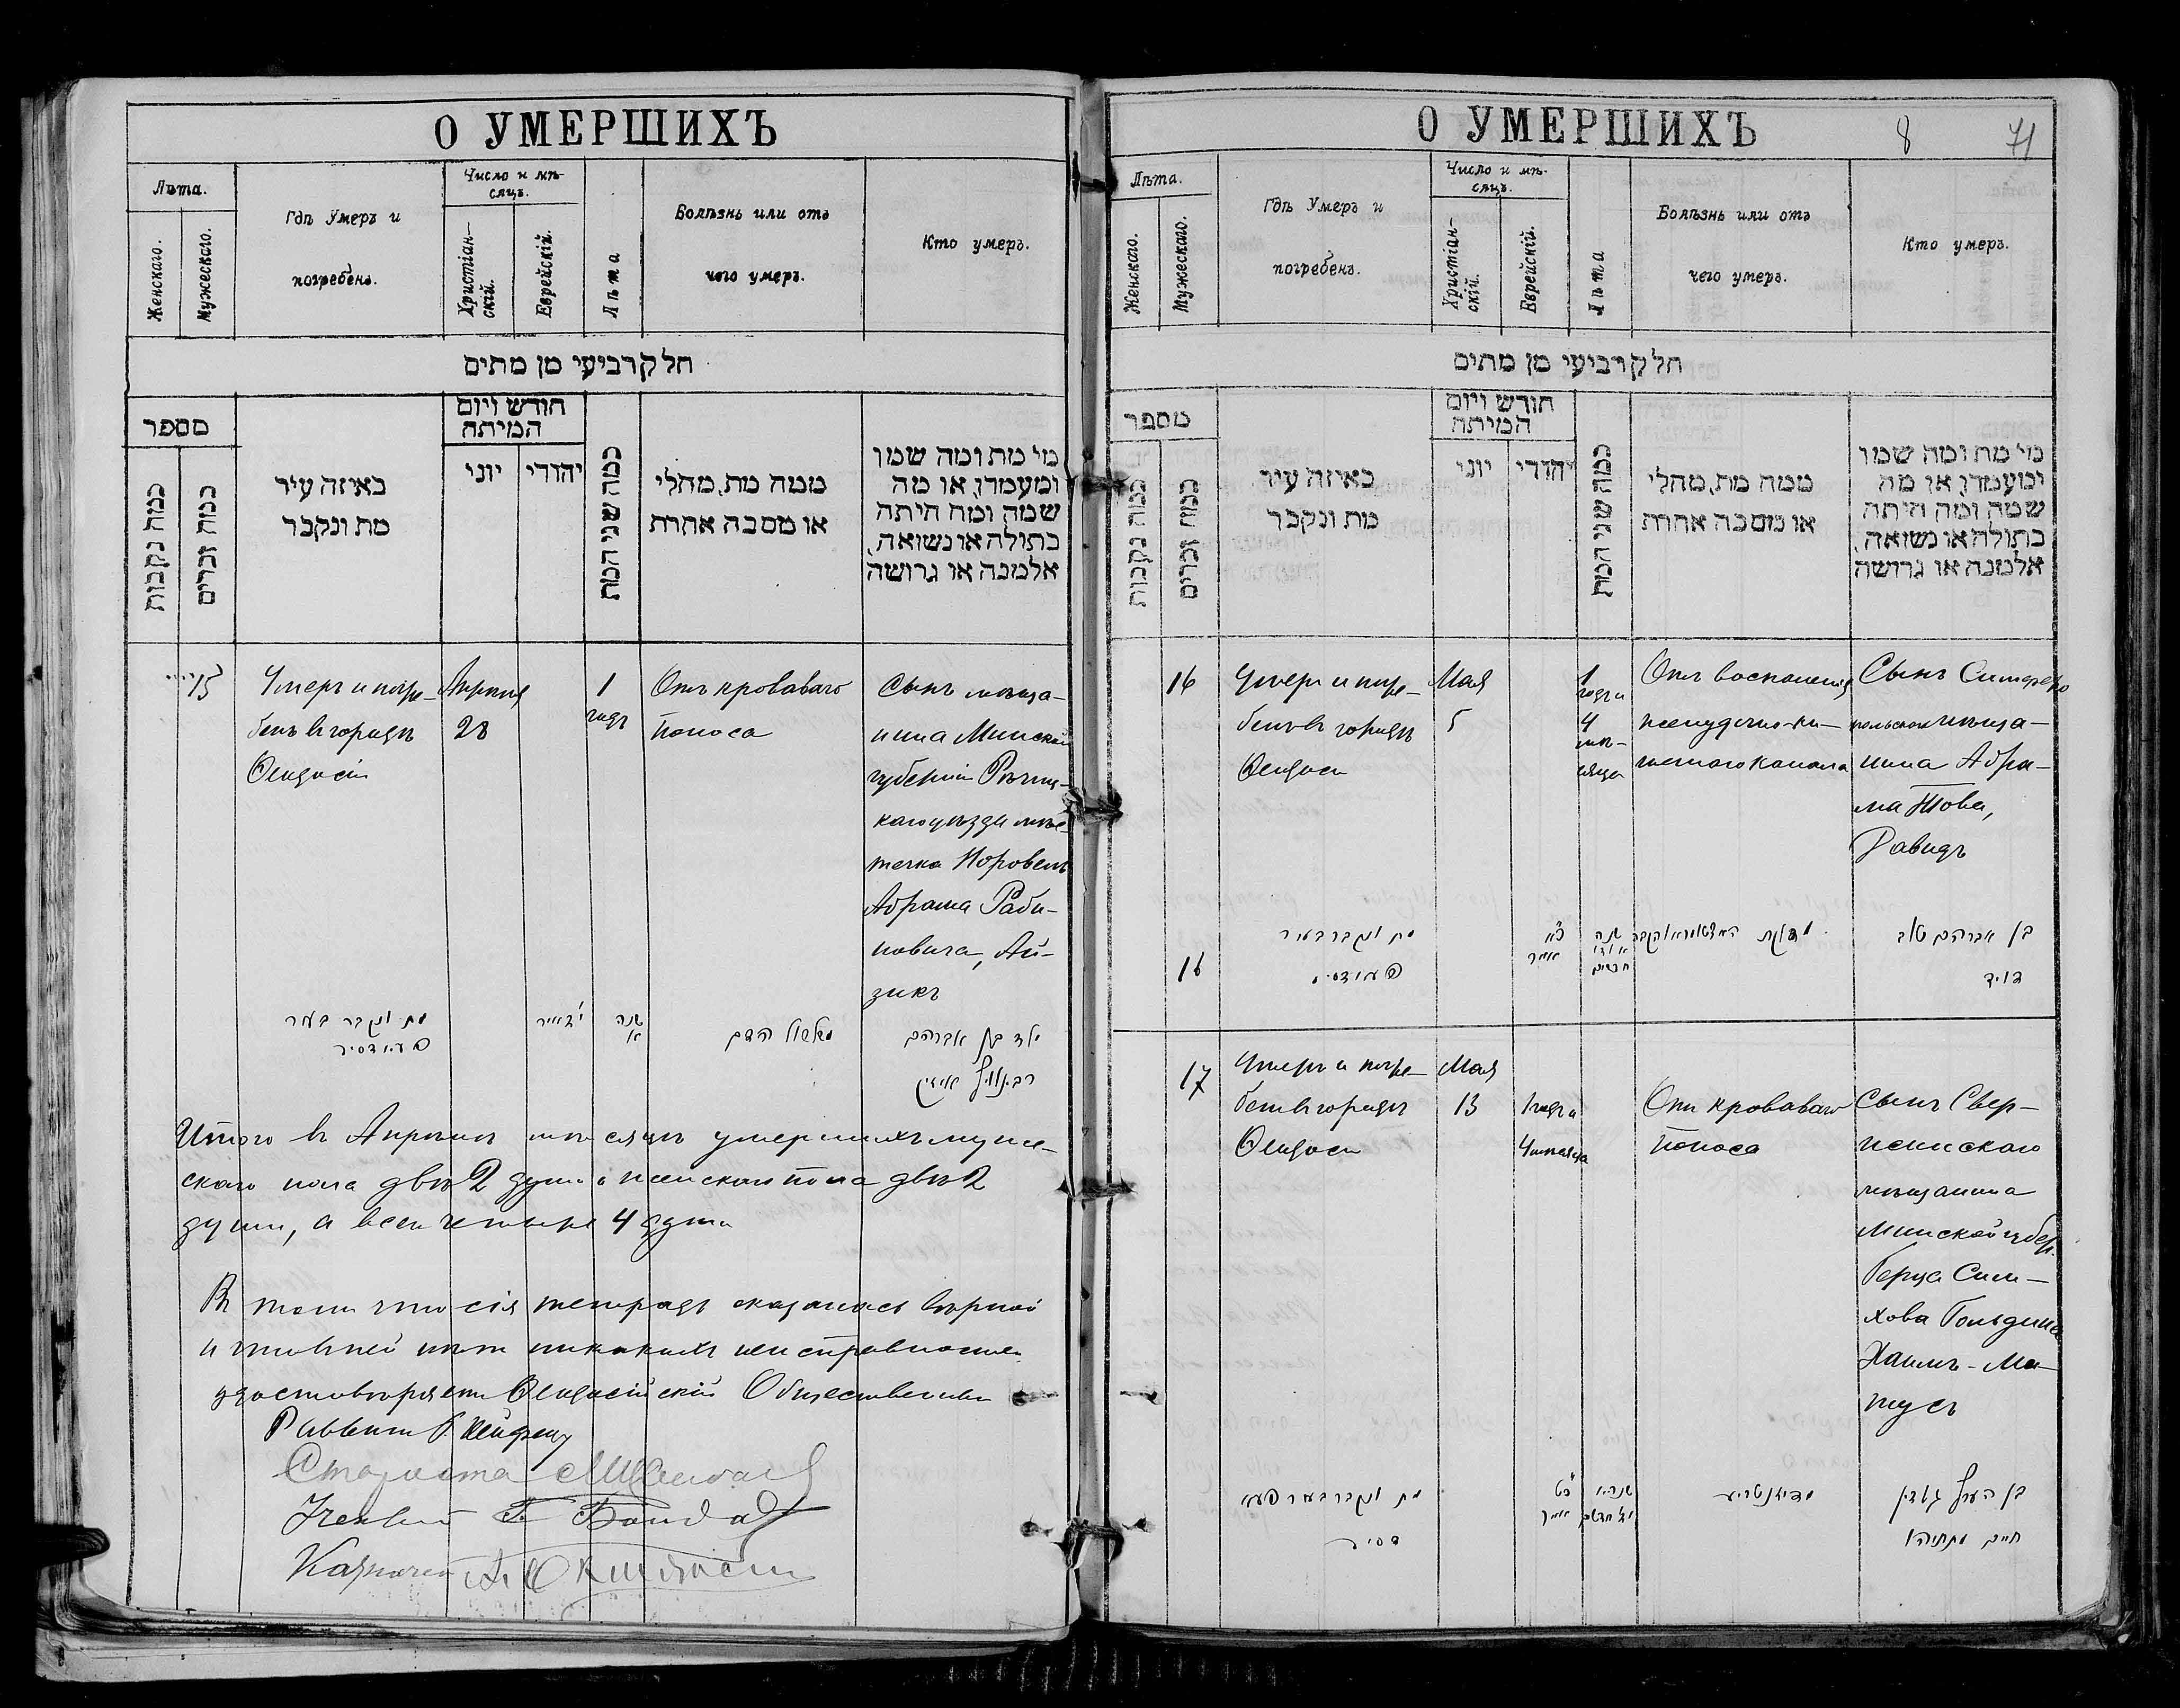 О УМЕРШИХЪ
Лѣта.
Женскаго.
Мужескаго.
Гдѣ Умеръ и
погребенъ.
Число и мѣ-
сяцъ.
Христіан-
скій.
Еврейскій.
Лѣта
Болѣзнь или отъ
чего умеръ.
Кто умеръ.
חלק רביעי מן מתים
מספר
כמה נקבות
כמה זכרים
באיזה עיר
מת ונקבר
חודש ויום
המיתה
יוני
יהודי
כמה שני המת
ממה מת, מחלי
או מסבה אחרת
מי מת ומה שמו
ומעמדו, או מה
שמה ומה היתה
בתולה או נשואה,
אלמנה או גרושה
15
Умеръ и погре-
бенъ въ городѣ
Ѳеодосіи
Апрѣля
28
1
годъ
Отъ кроваваго
поноса
Сынъ мѣща-
нина Минской
губерніи Рѣчиц-
каго уѣзда мѣс-
течка Норовель
Абрама Раби-
новича, Ай-
зикъ
מת ונקבר בעיר
פעודסיי
אייר
שנה
א
משלשול הדם
ילד בן אברהם
רבינוויץ אייזיק
Итого въ Апрѣлѣ мѣсяцѣ умершихъ муже-
скаго пола двѣ 2 души женскаго пола двѣ 2
души, а всего четыре 4 души
Въ томъ что сія тетрадь оказалась вѣрной
и что въ ней нѣтъ никакихъ неисправностей
удостовѣряетъ Ѳеодосійскій Общественный
Раввинъ
Староста
Ученый
Казначей
О УМЕРШИХЪ
8
71
Лѣта.
Женскаго.
Мужескаго.
Гдѣ Умеръ и
погребенъ.
Число и мѣ-
сяцъ.
Христіан-
скій.
Еврейскій.
Лѣта
Болѣзнь или отъ
чего умеръ.
Кто умеръ.
חלק רביעי מן מתים
מספר
כמה נקבות
כמה זכרים
באיזה עיר
מת ונקבר
חודש ויום
המיתה
יוני
יהודי
כמה שני המת
ממה מת, מחלי
או מסבה אחרת
מי מת ומה שמו
ומעמדו, או מה
שמה ומה היתה
בתולה או נשואה,
אלמנה או גרושה
16
Умеръ и погре-
бенъ въ городѣ
Ѳеодосіи
Мая
5
1
годъ и
4
мѣ-
сяца
Отъ воспаленія
желудочно-ки-
шечнаго канала
Сынъ Симферо
польскаго мѣща-
нина Абра-
ма Това,
Давидъ
16
מת ונקבר בעיר
פעודסיי
כא
אייר
שנה
חדשים
בן אברהם טוב
דויד
17
Умеръ и погре-
бенъ въ городѣ
Ѳеодосіи
Мая
13
1 годъ и
4 мѣсяца
Отъ кроваваго
поноса
Сынъ Свер-
женскаго
мѣщанина
Минской губер.
Герца Сим-
хова Гольдина
Хаимъ-Ма-
тусъ
מת ונקבר בעיר פעא
דסיי
כט
אייר
מדיזנטריע
בן הערץ גולדין
חיים מתתיהו